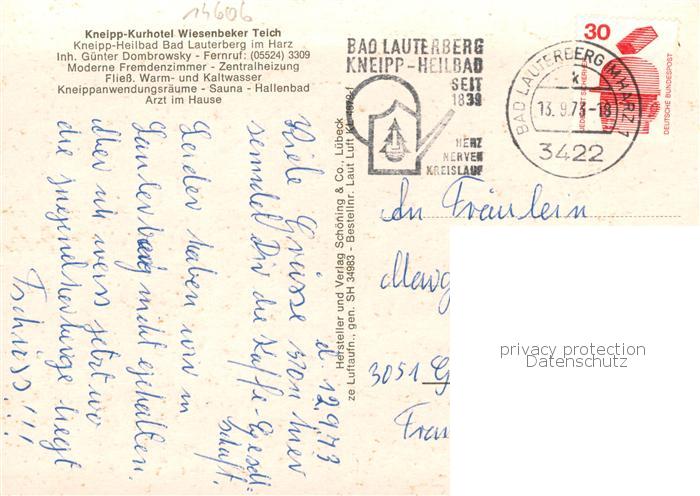 14606
Kneipp-Kurhotel Wiesenbeker Teich
Kneipp-Heilbad Bad Lauterberg im Harz
Inh. Günter Dombrowsky - Fernruf: (05524) 3309
Moderne Fremdenzimmer - Zentralheizung
Fließ. Warm- und Kaltwasser
Kneippanwendungsräume - Sauna - Hallenbad
Arzt im Hause
BAD LAUTERBERG
KNEIPP-HEILBAD
SEIT
1839
HERZ
NERVEN
KREISLAUF
BAD LAUTERBERG IM HARZ 1
k
13.9.73-18
3422
30
DEUTSCHE BUNDESPOST
d. 12.9.73
Viele Grüsse von hier
sendet Dir die Kaffe-Gesell-
schaft.
Leider haben wir in
Lauterberg nicht
Aber ich weiss jetzt wo
die Jugendherberge liegt
Tschüss!!!
Hersteller und Verlag Schöning & Co., Lübeck
ze Luftaufn., gen. SH 34983 - Bestellnr. Laut Luft
An Fräulein
Marg
3051 G
Frau
privacy protection
Datenschutz